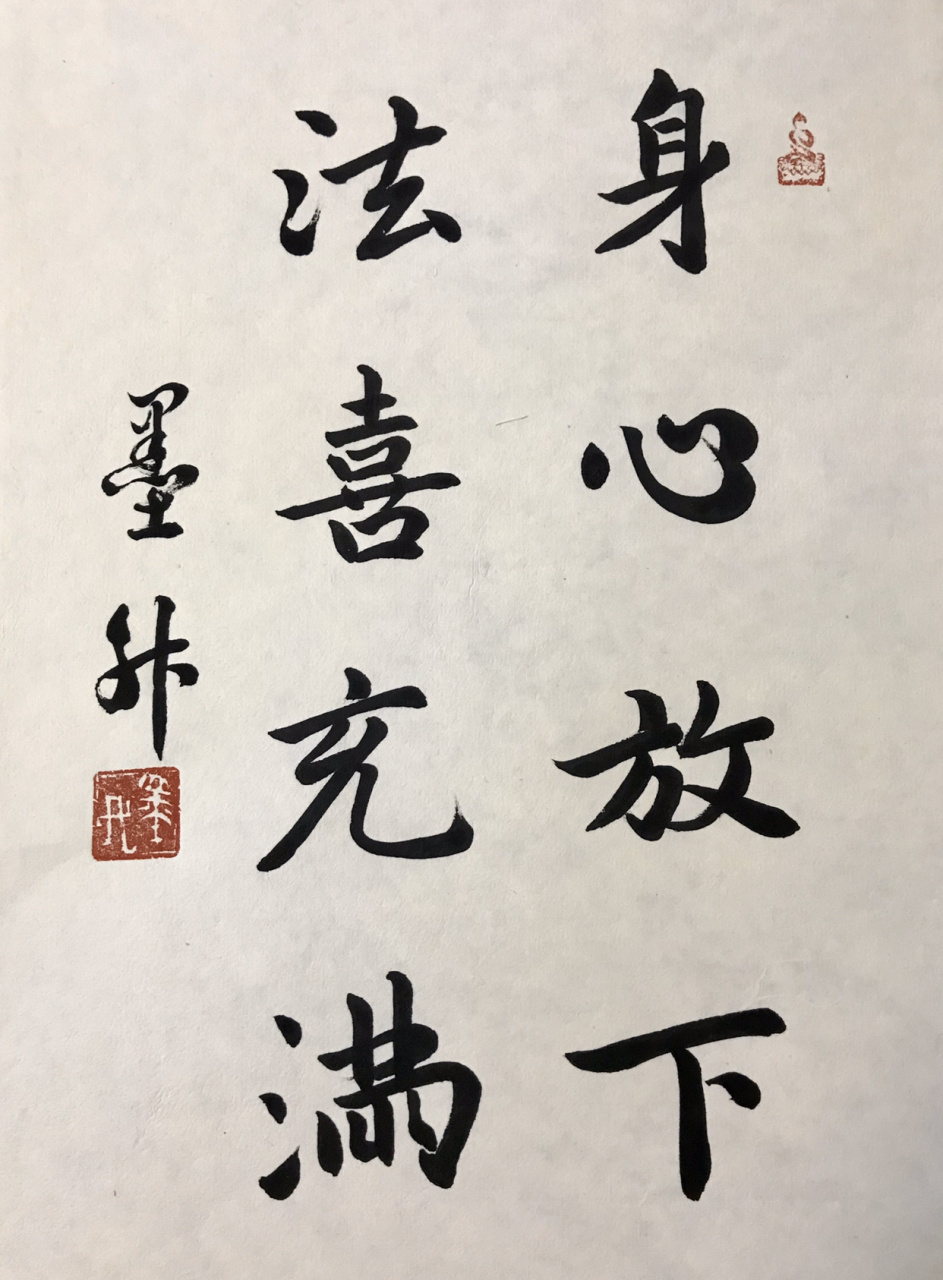 身心放下
法喜充滿
墨升